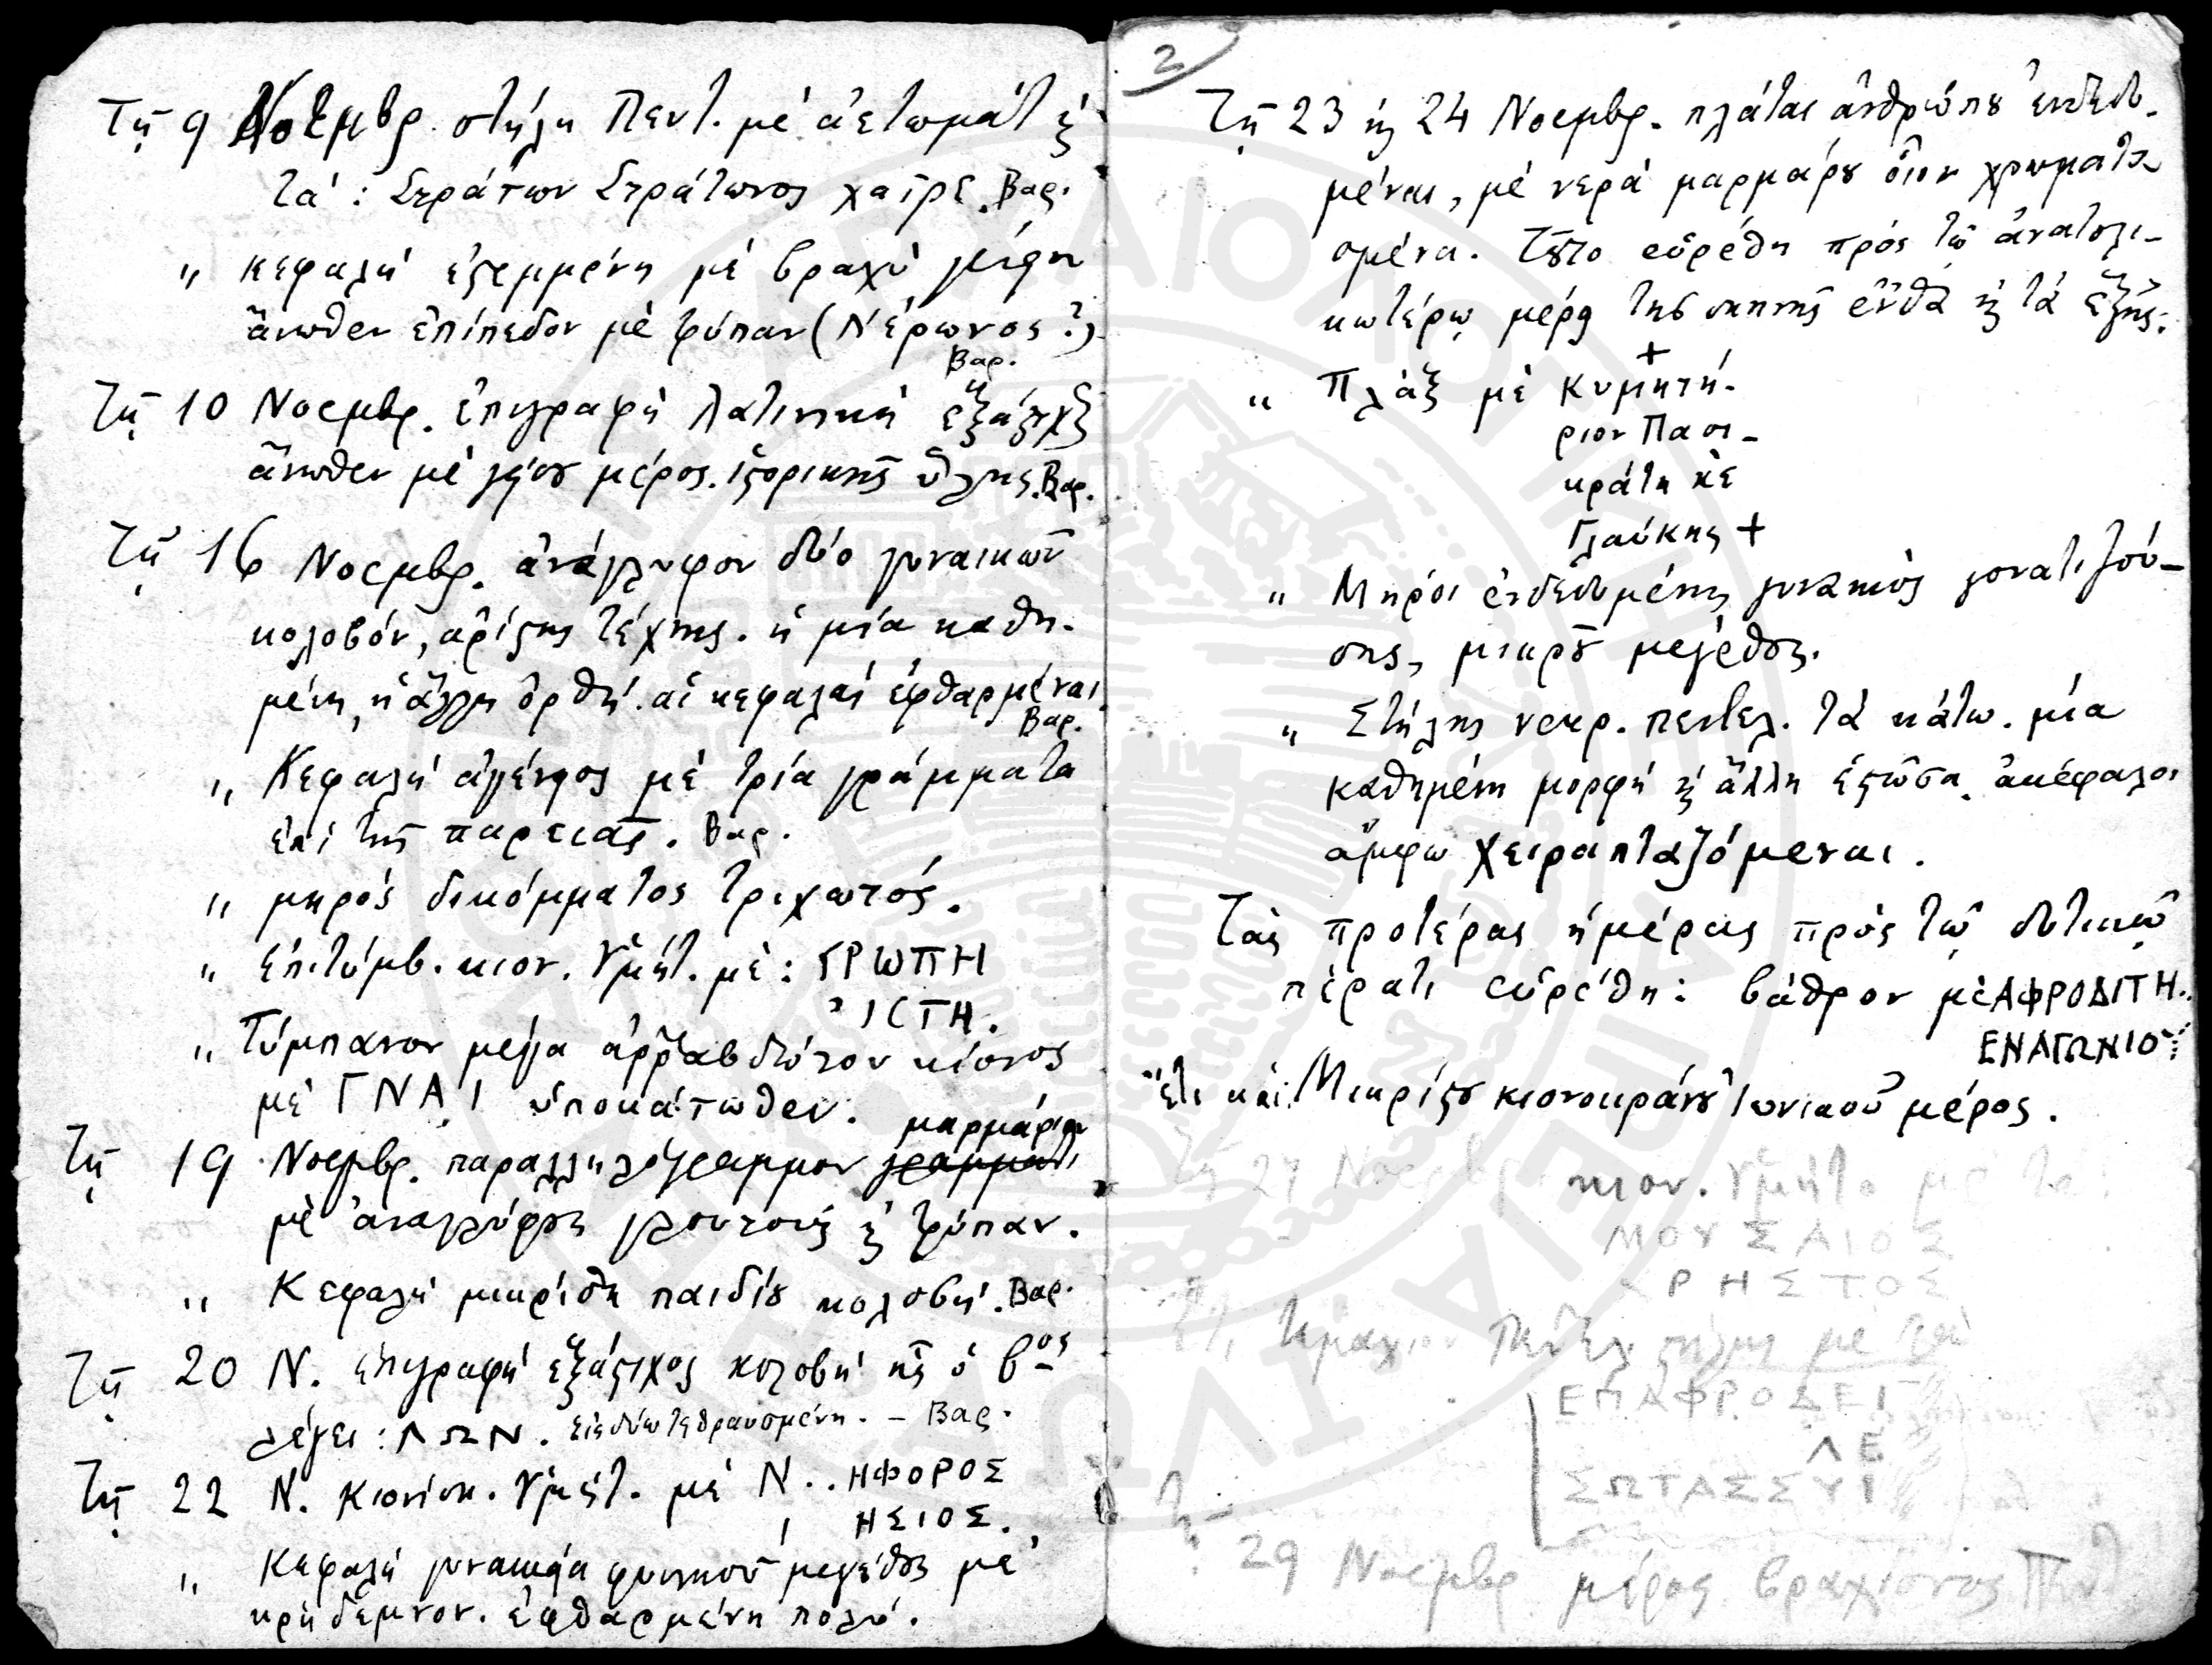 Τῇ 9 Νοεμβρ. στήλη Πεντ. μὲ ἀετωμάτ. κ
τά: Στράτων Στράτωνος χαῖρε. Βαρ.
" κεφαλὴ ἐστεμμένη μὲ βραχὺ
ἄνωθεν ἐπίπεδον μὲ τρύπαν (Νέρωνος?)
Βαρ.
Τῇ 10 Νοεμβρ. ἐπιγραφὴ Λατινικὴ ἑξάστιχος
ἄνωθεν μὲ μέρος ἱστορικῆς ὕλης. Βαρ.
Τῇ 16 Νοεμβρ. ἀνάγλυφον δύο γυναικῶν
κολοβόν, ἀρίστης τέχνης. ἡ μία καθη-
μένη, ἡ ἄλλη ὀρθή. αἱ κεφαλαὶ ἐφθαρμέναι.
Βαρ.
" Κεφαλὴ ἀγένειος μὲ τρία γράμματα
ἐπὶ τῆς παρειᾶς. Βαρ.
" μηρὸς δικόμματος τριχωτός.
" ἐπιτύμβ. κιον. Ὑμήτ. μέ: ΤΡΩΠΗ
ΙϹΤΗ.
" Τύμπανον μέγα ἀρραβδώτου κίονος
μὲ ΓΝΑΙ ὑποκάτωθεν.
μαρμάρινον
Τῇ 19 Νοεμβρ. παραλληλόγραμμον γραμμάτι
μὲ ἀναγλύφους γλουτοὺς κ τρύπαν.
" Κεφαλὴ μικρίστη παιδίου κολοβή. Βαρ.
Τῇ 20 Ν. ἐπιγραφὴ ἑξάστιχος κολοβὴ ἧς ὁ βος
λέγει: ΛΩΝ. εἰς δύω τεθραυσμένη. – Βαρ.
Τῇ 22 Ν. Κιονίσκ. Ὑμήτ. μὲ Ν..ΗΦΟΡΟΣ
ΗΣΙΟΣ.
" Κεφαλὴ γυναικεία φυσικοῦ μεγέθους μὲ
κρήδεμνον. ἐφθαρμένη πολύ.
2
Τῇ 23 κ 24 Νοεμβρ. πλάται ἀνθρώπου ἐνδεδυ-
μέναι, μὲ νερὰ μαρμάρου οἷον χρωματι-
σμένα. τοῦτο εὑρέθη πρὸς τῷ ἀνατολι-
κωτέρῳ μέρει τῆς σκηνῆς ἔνθα κ τὰ ἑξῆς:
+
" Πλὰξ μὲ Κυμητή-
ριον Πασι-
κράτη κὲ
Γλαύκης +
" Μηροὶ ἐνδεδυμένης γυναικὸς γονατιζού-
σης, μικροῦ μεγέθους.
" Στήλης νεκρ. πεντελ. τὰ κάτω. μία
καθημένη μορφὴ κ ἄλλη ἑστῶσα. ἀκέφαλοι
ἄμφω χειραπταζόμεναι.
Τὰς προτέρας ἡμέρας πρὸς τῷ δυτικῷ
πέρατι εὑρέθη: βάθρον μὲ ΑΦΡΟΔΙΤΗ..
ΕΝΑΓΩΝΙΟ
Ἔτι καὶ: Μικρίστου κιονοκράνου Ἰωνικοῦ μέρος.
Τῇ 27 Νοεμβρ κιον. Ὑμήτ μὲ τὸ
ΜΟΥΣΑΙΟΣ
ΧΡΗΣΤΟΣ
τεμάχιον Πεντελ. στήλης μὲ
ΕΠΑΦΡΟΔΕΙ
ΛΕ
ΣΩΤΑΣΣΥΙ
Τῇ 29 Νοεμβρ μέρος βραχίονος Πεντ